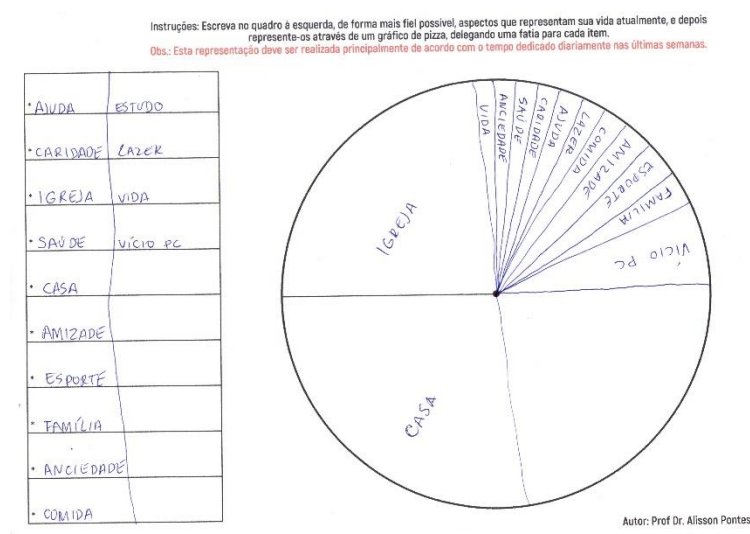 Instruções: Escreva no quadro à esquerda, de forma mais fiel possível, aspectos que representam sua vida atualmente, e depois
represente-os através de um gráfico de pizza, delegando uma fatia para cada item.
Obs.: Esta representação deve ser realizada principalmente de acordo com o tempo dedicado diariamente nas últimas semanas.
• AJUDA ESTUDO
• CARIDADE LAZER
• IGREJA VIDA
• SAÚDE VÍCIO PC
• CASA
• AMIZADE
• ESPORTE
• FAMÍLIA
• ANCIEDADE
• COMIDA
IGREJA
VIDA
ANCIEDADE
SAÚDE
CARIDADE
AJUDA
LAZER
COMIDA
AMIZADE
ESPORTE
FAMILIA
VÍCIO PC
CASA
Autor: Prof Dr. Alisson Pontes